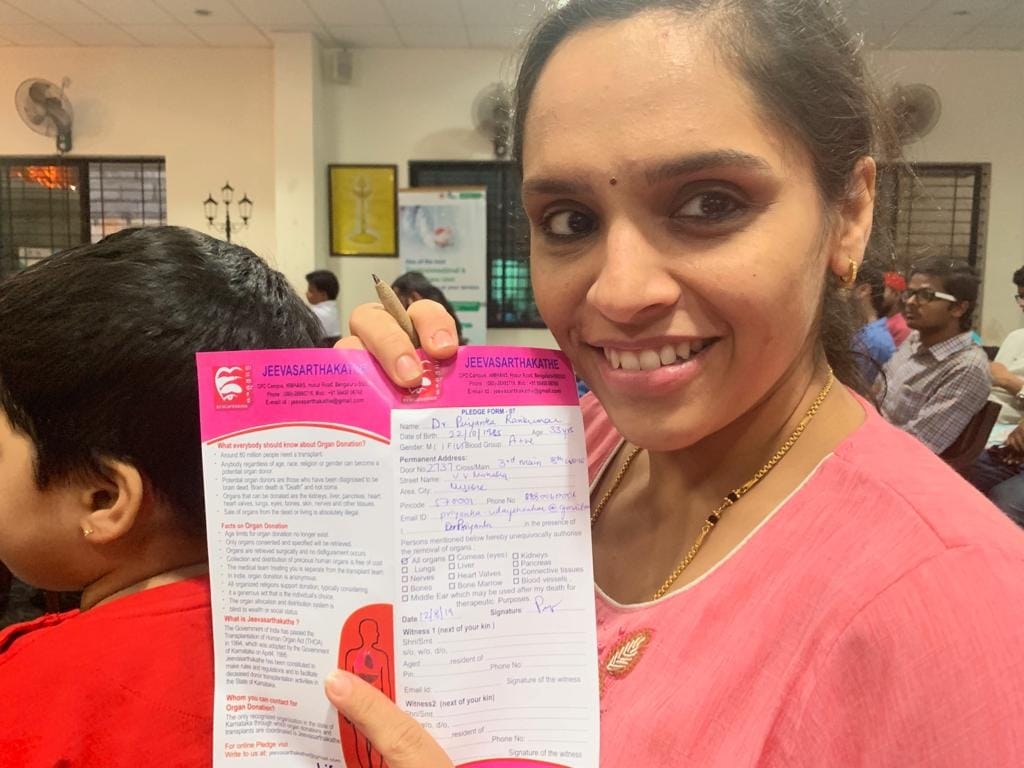 JEEVASARTHAKATHE
What everybody should know about Organ Donation?
Around 80 million people need a transplant.
Anybody regardless of age, race, religion or gender can become a
potential organ donor.
Potential organ donors are those who have been diagnosed to be
brain dead. Brain death is "Death" and not coma.
Organs that can be donated are the kidneys, liver, pancreas, heart,
heart valves, lungs, eyes, bones, skin, nerves and other tissues.
Sale of organs from the dead or living is absolutely illegal.
Facts on Organ Donation
Age limits for organ donation no longer exist.
Only organs consented and specified will be retrieved.
Organs are retrieved surgically and no disfigurement occurs
Collection and distribution of precious human organs is free of cost
The medical team treating you is separate from the transplant team.
In India, organ donation is anonymous.
All organized religions support donation, typically considering
it a generous act that is the individual's choice.
The organ allocation and distribution system is
blind to wealth or social status
What is Jeevasarthakathe ?
The Government of India has passed the
Transplantation of Human Organ Act (THOA)
in 1994, which was adopted by the Government
of Karnataka on April, 1995.
Jeevasarthakathe has been constituted to
make rules and regulations and to facilitate
deceased donor transplantation activities in
the State of Karnataka.
Whom you can contact for
Organ Donation?
The only recognized organisation in the state of
Karnataka through which organ donations and
transplants are coordinated is Jeevasarthakathe
For online Pledge visit
Write to us at: jeevasarthakathe@gmail.com
JEEVASARTHAKATHE
E-mail id : jeevasarthakathe@gmail.com
PLEDGE FORM - 07
Name: Dr Priyanka
Date of Birth 22/10/1985 Age 33 yrs
Gender: M ( ) F Blood Group: A+ve
Permanent Address:
Door No. 2737 Cross/Main 3rd main
Street Name: V V Mohalla
Area, City Mysore
Pincode 570001 Phone No
Email ID:
I Dr Priyanka in the presence of
Persons mentioned below hereby unequivocally authorise
the removal of organs :
All organs Corneas (eyes) Kidneys
Lungs Liver Pancreas
Nerves Heart Valves Connective tissues
Bones Bone Marrow Blood vessels
Middle Ear which may be used after my death for
therapeutic. Purposes.
Date 12/8/19 Signature:
Witness 1 (next of your kin )
Shri/Smt
s/o, w/o, d/o,
Aged resident of
Pin Phone No:
Email Id: Signature of the witness
Witness2 (next of your kin)
Shri/Smt
w/o, d/o,
resident of
Phone No:
Signature of the witness